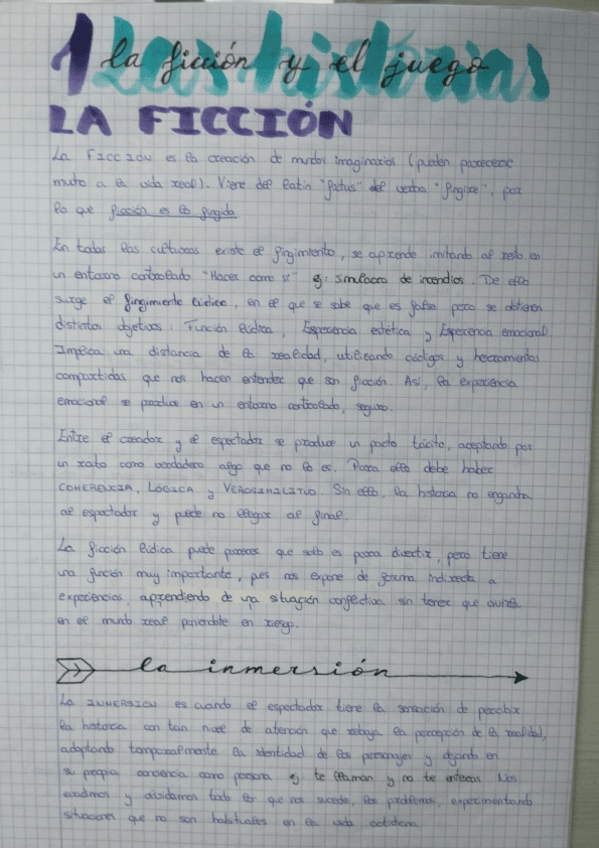 1 Las historias
la ficción y el juego
LA FICCIÓN
La FICCIÓN es la creación de mundos imaginarios (pueden parecerse
mucho a la vida real). Viene del latín "fictus" del verbo "fingire", por
lo que ficción es lo fingido
En todas las culturas existe el fingimiento, se aprende imitando al resto en
un entorno controlado "Hacer como si" ej: simulacro de incendios. De ello
surge el fingimiento lúdico, en el que se sabe que es falso pero se obtienen
distintos objetivos: Función lúdica, Experiencia estética y Experiencia emocional.
Implica una distancia de la realidad, utilizando códigos y herramientas
compartidas que nos hacen entender que son ficción. Así, la experiencia
emocional se produce en un entorno controlado, seguro.
Entre el creador y el espectador se produce un pacto tácito, aceptando por
un rato como verdadero algo que no lo es. Para ello debe haber
COHERENCIA, LÓGICA y VEROSIMILITUD. Sin ello, la historia no engancha
al espectador y puede no llegar al final.
La ficción lúdica puede parecer que solo es para divertir, pero tiene
una función muy importante, pues nos expone de forma indirecta a
experiencias, aprendiendo de una situación conflictiva sin tener que vivirla
en el mundo real poniendote en riesgo.
la inmersión
La INMERSIÓN es cuando el espectador tiene la sensación de percibir
la historia con tan nivel de atención que rebaja la percepción de la realidad,
adoptando temporalmente la identidad de los personajes y dejando en
su propia conciencia como persona ej te llaman y no te enteras. Nos
evadimos y olvidamos todo lo que nos sucede, los problemas, experimentando
situaciones que no son habituales en la vida cotidiana